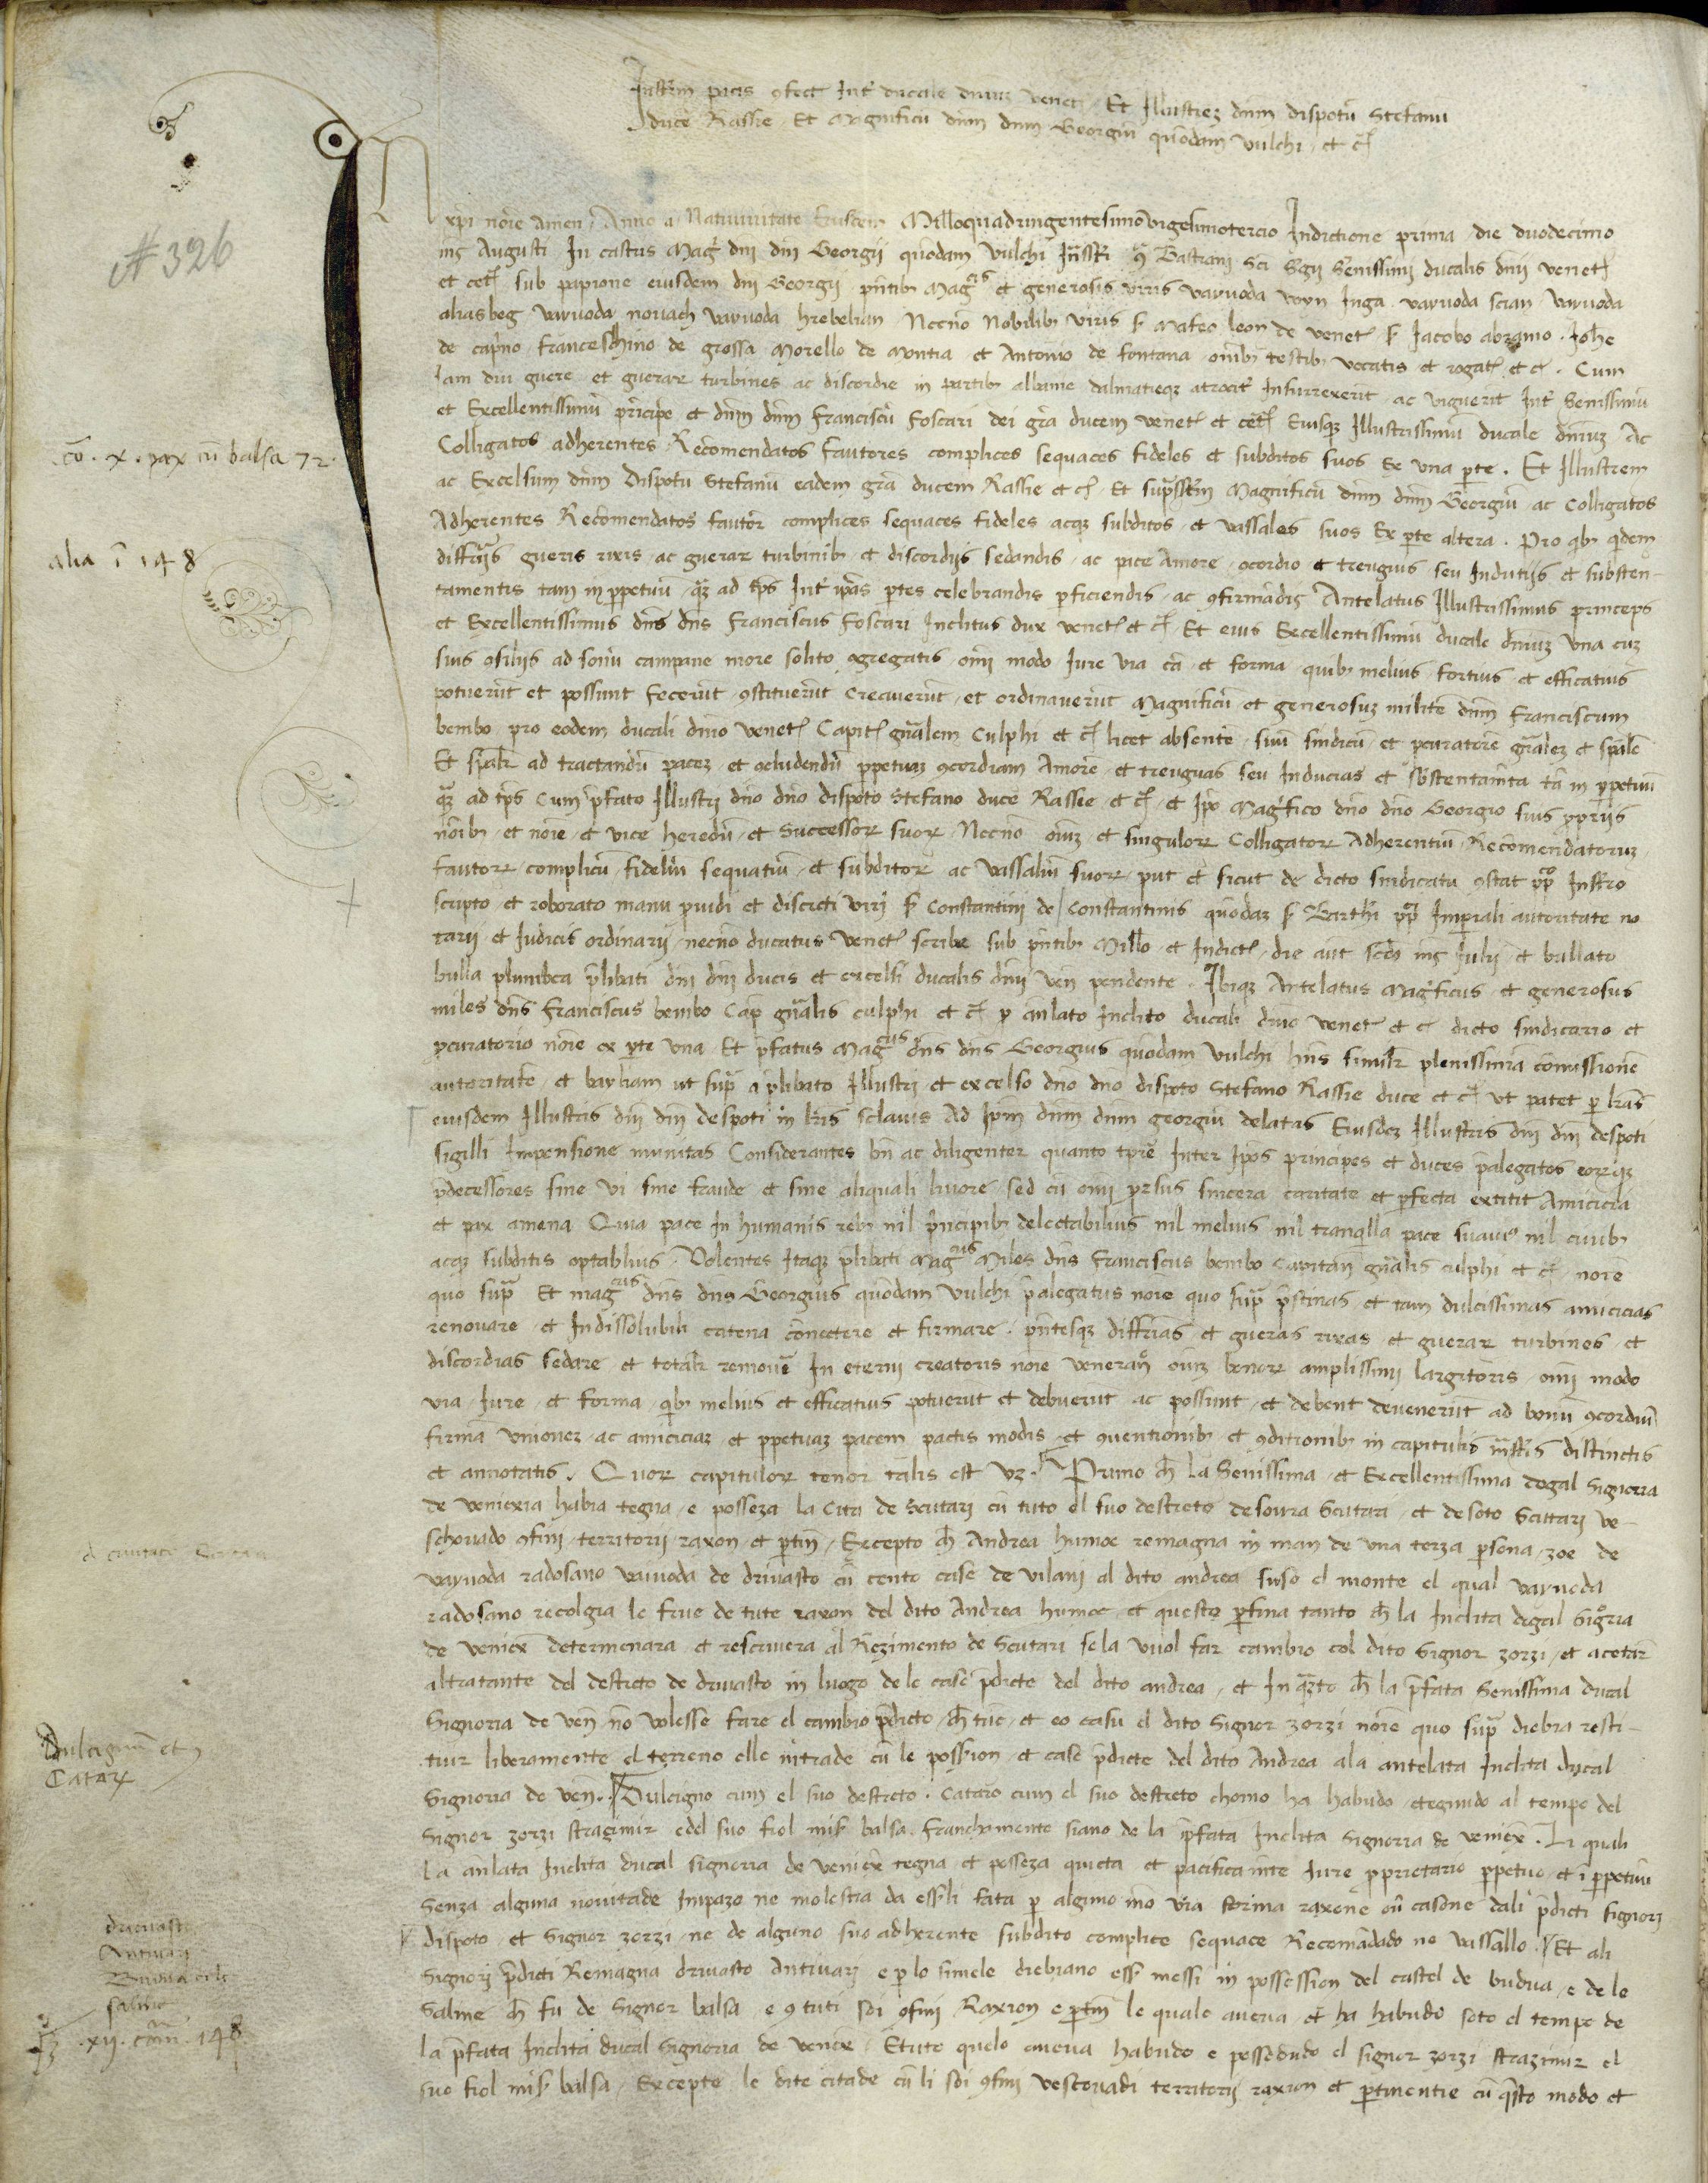 Instrm pacis ofect Int ducale dnium venet. Et Illustrez dnm dispotu Stefanu
duce Rassie, Et Magnificu dnm dnm Georgiu quondam vulchi, et c
A 326
xpi noie amen, Anno a Nativitate Eiusdem Milloquadringentesimo vigesimotercio Indictione prima die duodecimo
ms Augusti In castris Mag dni dni Georgii quondam Vulchi Sci Sergii Senissimi ducalis dnii venet
et cet sub papione eiusdem dni Georgii pntib Mag et generosis viris vayvoda voyn Inga vayvoda scian vayvoda
aliasbeg vayvoda novach vayvoda hrebelian Necno Nobilib viris s Mafeo leon de venet s Jacobo abramo Johe
de caprno franceschino de grossa Morello de et Antonio de fontana omib testib vocatis et rogat et c. Cum
iam diu guere et guerar turbines ac discordie in partib albanie dalmatieqz atrocit Insurrexerit ac viguerit Int Senissimu
et Excellentissimu principe et dnm dnm franciscu foscari dei gra ducem venet et cet Eiusqz Illustrissimu ducale dniuz Ac
Colligatos adherentes Recomendatos fautores complices sequaces fideles et subditos suos Ex una pte. Et Illustrem
ac Excelsum dnm Dispotu Stefanu eadem gra ducem Rassie et c. Et suprasstm Magnificu dnm dnm Georgiu ac Colligatos
Adherentes Recomendatos fautor complices sequaces fideles acqz subditos et vassales suos Ex pte altera. Pro qb qdem
diffrijs gueris rixis ac guerar turbinib et discordijs sedandis ac pace Amore ocordio et treuguis seu Indutijs et substen-
tamentis tam in ppetuu qz ad tps Int ipas ptes celebrandis pficiendis ac ofirmadis Antelatus Illustrissimus princeps
et Excellentissimus dns dns franciscus foscari Inclitus dux venet et c. Et eius Excellentissimu ducale dniuz una cuz
suis osilijs ad sonu campane more solito ogregatis omi modo Jure via ca et forma quib melius fortius et efficatius
potuerut et possunt fecerut ostituerut creaverut et ordinaverut Magnificu et generosuz milite dnm franciscum
bembo pro eodem ducali dnio venet Capit gnalem Culphi et c licet absente suu sindicu et pcuratore gnalez et spale
Et spalr ad tractandu pacez et ocludendu ppetuaz ocordiam Amore et treuguas seu Inducias et sostentamta ta in ppetuu
qz ad tps cum pfato Illustri dno dno dispoto Stefano duce Rassie et c et Ipo Magfico dno dno Georgio suis pprijs
noib et noie et vice heredu et successor suor Necno oiuz et singulor Colligator Adherentiu Recomendatoruz
fautor complicu fideliu sequatiu et subditor ac vassaliu suor put et sicut de dicto sindicatu ostat Instro
scripto et roborato manu pvidi et discreti viri s Constantini de Constantinis quodaz s Imperiali autoritate no
tarij et Iudicis ordinarij necno ducatus venet scribe sub pntib Millo et Indict die aut scdo ms Iulij et bullato
bulla plumbea plibati dni dni ducis et excelsi ducalis dnij ven pendente. Ibiqz Antelatus Magficus et generosus
miles dns franciscus bembo Cap gnalis culphi et c p anlato Inclito ducali dnio venet et c dicto sindicario et
pcuratorio noie ex pte una Et pfatus Mag dns dns Georgius quondam Vulchi hns similr plenissima comissione
autoritate et bayliam ut supra a plibato Illustri et excelso dno dno dispoto Stefano Rassie duce et c ut patet p lras
eiusdem Illustris dni dni despoti in lris sclavis Ad Ipm dnm dnm georgiu delatas Eiusdez Illustris dni dni despoti
sigilli Impensione munitas Considerantes bn ac diligenter quanto tpre Inter Ipos principes et duces palegatos eorqz
pdecessores sine vi sine fraude et sine aliquali livore sed cu omi prsus sincera caritate et pfecta extitit Amicicia
et pax amena Quia pace In humanis reb nil principib delectabilius nil melius nil tranqlla pace suavi nil civib
acqz subditis optabilius. Volentes Itaqz plibati Mag Miles dns franciscus bembo Capitan gnalis culphi et c noie
quo supra Et mag dns dns Georgius quondam Vulchi palegatus noie quo supra pstinas et tam dulcissimas amicicias
renovare et Indissolubili catena conectere et firmare, pntesqz diffrias et gueras rixas et guerar turbines et
discordias sedare et totalr removere In eterni creatoris noie oium bonor amplissimi largitoris omi modo
via Iure et forma qb melius et efficatius potuerut et debuerut ac possunt et debent devenerut ad bonu ocordiu
firma unionez ac amiciciaz et ppetuaz pacem pactis modis et oventionib et oditionib in capitulis distinctis
et annotatis. Quor capitulor tenor talis est vz. Primo ch la Senissima et Excellentissima dogal Signoria
de veniexia habia tegna e posseza la Cita de Scutari cu tuto el suo destreto desoura Scutari et de soto Scuttari ve-
schovado ofini territorij raxon et ptin. Excepto ch Andrea humoe remagna in man de una terza psona zoe de
vayvoda radosano vaivoda de drivasto cu cento case de vilani al dito andrea suso el monte el qual vayvoda
radosano recolgia le frue de tute raxon del dito Andrea humoe et questo pfina tanto ch la Inclita dogal Signoria
de veniex determenara et rescrivera al Rezimento de Scutari se la vuol far cambio col dito Signor zorzi et acetar
altratante del destreto de drivasto in luogo de le case pdicte del dito andrea, et In qzto ch la pfata Senissima ducal
Signoria de ven no volesse fare el cambio pdicto, ch tuc et eo casu el dito Signor zorzi noie quo supra diebia resti-
tuir liberamente el terreno elle intrade cu le possion et case pdicte del dito Andrea ala antelata Inclita ducal
Signoria de ven. Dulcigno cum el suo destreto. Cataro cum el suo destreto chomo ha habudo etegnudo al tempo del
Signor zorzi strazimir edel suo fiol mis balsa franchamente siano de la pfata Inclita Signoria de veniex. Li quali
la anlata Inclita ducal signoria de veniex tegna et posseza quieta et pacificamte Iure pprietario ppetuo et i ppetuu
Senza alguna novitade Impazo ne molestia da essli fata p alguno mo via forma raxone ou casone dali pdicti signori
dispoto et Signor zorzi ne de alguno suo adherente subdito complice sequace Recomadado ne vassallo. Et ali
Signori pdicti Remagna drivasto Antivari e p lo simele diebiano ess messi in possession del castel de budua, e de le
Saline ch fu de Signor balsa e o tuti soi ofini Raxion e ptin le quale aveva et ha habudo soto el tempo de
la pfata Inclita ducal Signoria de veniex. Etuto quelo aveva habudo e possedudo el signor zorzi strazimir el
suo fiol mis balsa, Excepto le dite citade cu li soi ofini vescovadi territorij raxion et ptinentie cu qsto modo et
co. x. pax cu balsa 72.
alia i 148
Dulcignu et
Catar
drivasto
Antivari
saline
.xij. 148